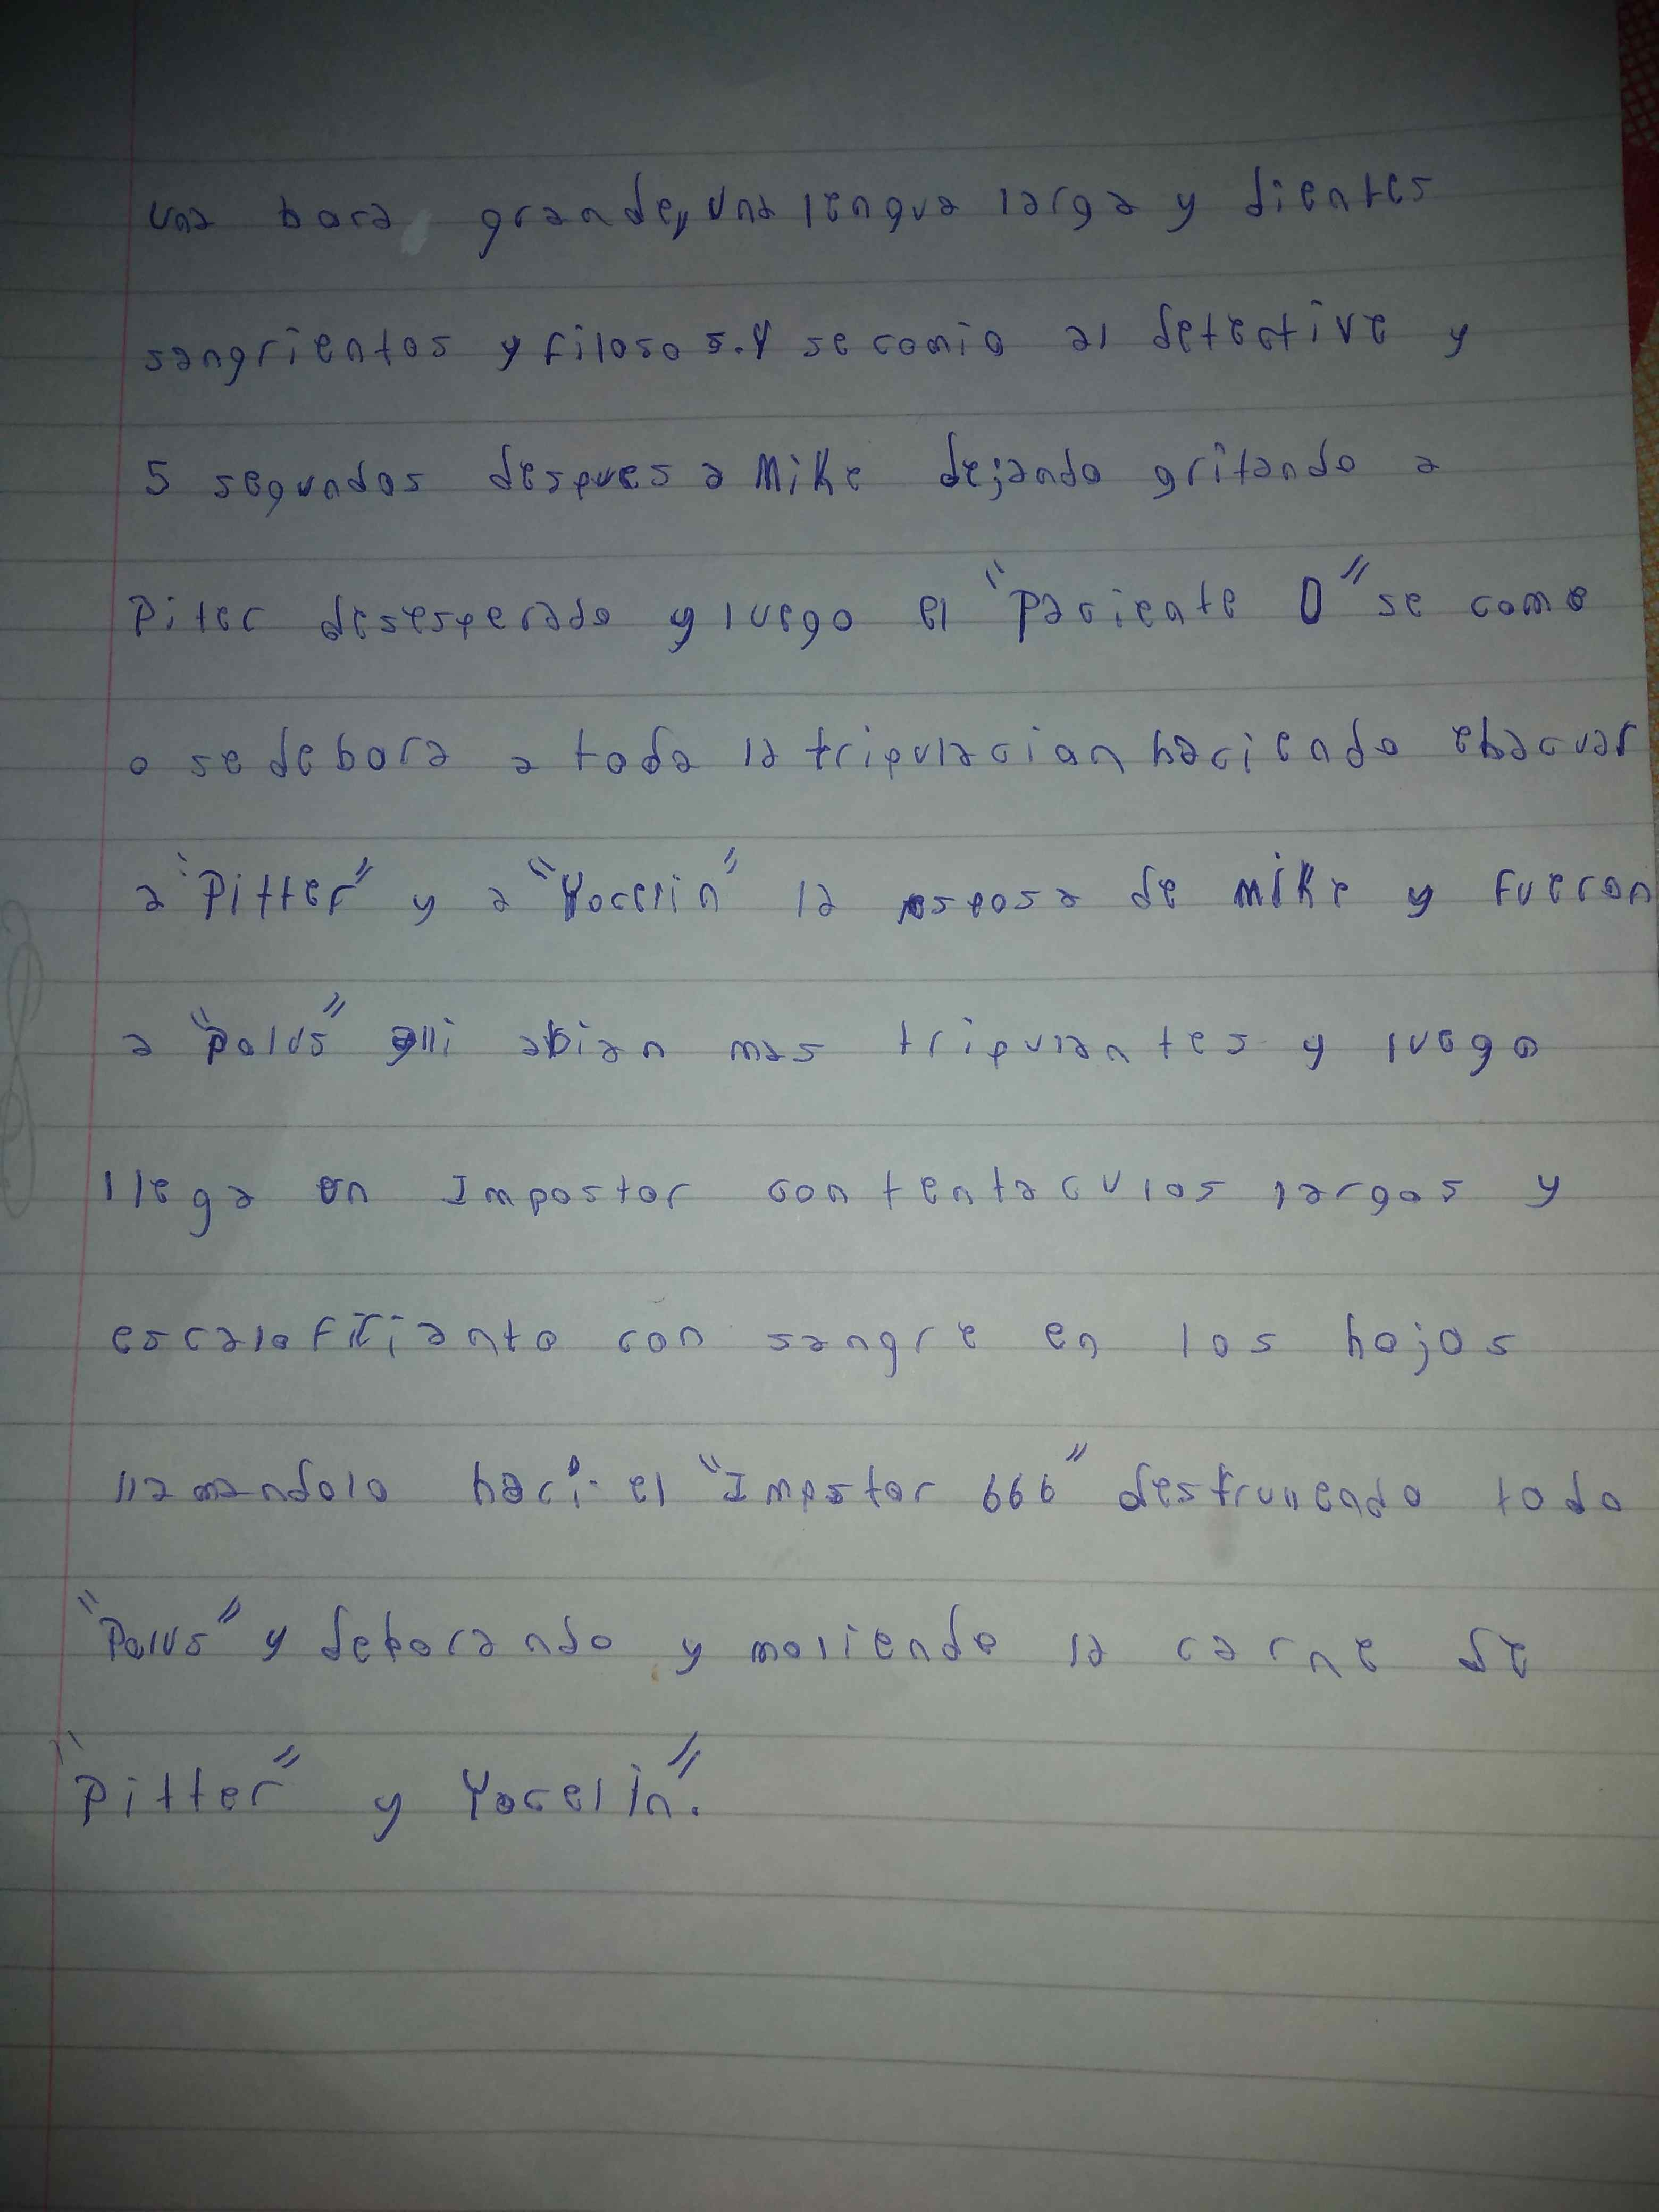 una boca grande, una lengua larga y dientes
sangrientos y filosos. Y se comio al detective y
5 segundos despues a Mike dejando gritando a
Piter desesperado y luego el "Paciente 0" se come
o se debora a toda la tripulacion haciendo ebacuar
a "Pitter" y a "Yocelin" la esposa de Mike y fueron
a "Polus" alli abian mas tripulantes y luego
llega un Impostor con tentaculos largos y
escalofriante con sangre en los hojos
llamandolo haci: el "Impstor 666" destrullendo todo
"Polus" y deborando y moliendo la carne de
"Pitter" y Yocelin".